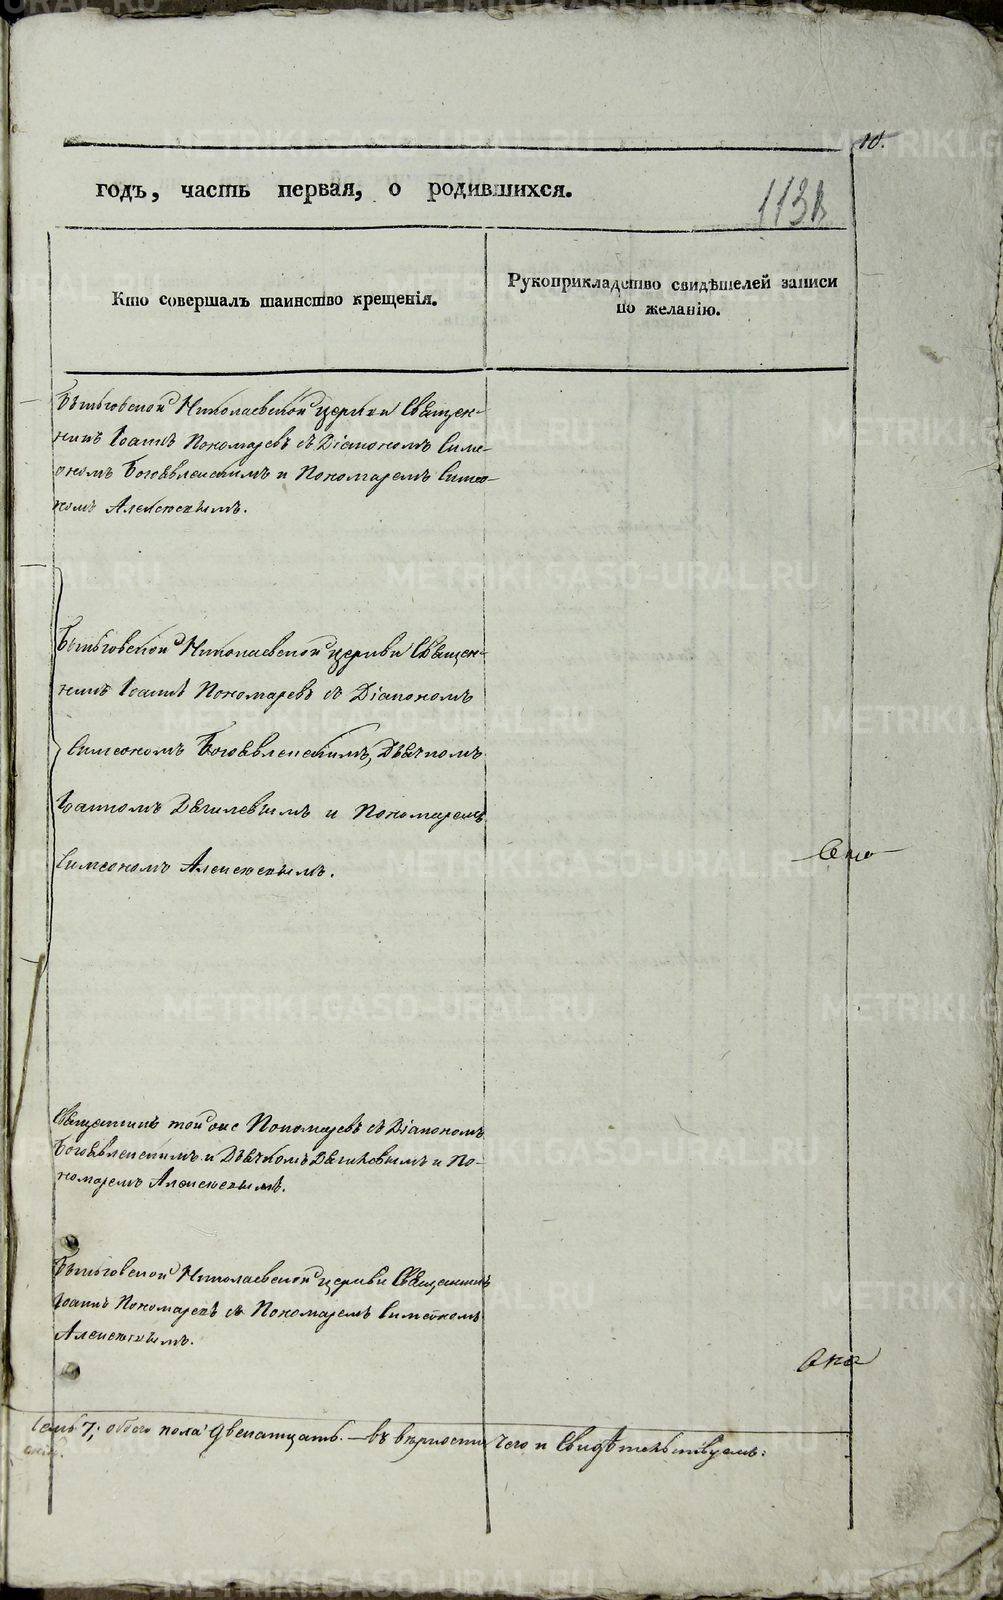 10.
годъ, часть первая, о родившихся.
113
Кто совершалъ таинство крещенія.
Рукоприкладство свидѣтелей записи
по желанію.
Николаевской церкви Священ-
никъ Іоаннъ Пономаревъ съ Діакономъ Симе-
ономъ Богоявленскимъ и Пономаремъ Симео-
номъ Алексѣевымъ.
Николаевской церкви Священ-
никъ Іоаннъ Пономаревъ съ Діакономъ
Симеономъ Богоявленскимъ, Дьячкомъ
Іоанномъ Дягилевымъ и Пономаремъ
Симеономъ Алексѣевымъ.
Священникъ той же Пономаревъ съ Діакономъ
Богоявленскимъ и Дьячкомъ Дягилевымъ и По-
номаремъ Алексѣевымъ.
Николаевской церкви Священникъ
Іоаннъ Пономаревъ съ Пономаремъ Симеономъ
Алексѣевымъ.
семь 7; обоего пола двенатцать. — въ вѣрности чего и свидѣтельствуемъ:
METRIKI.GASO-URAL.RU